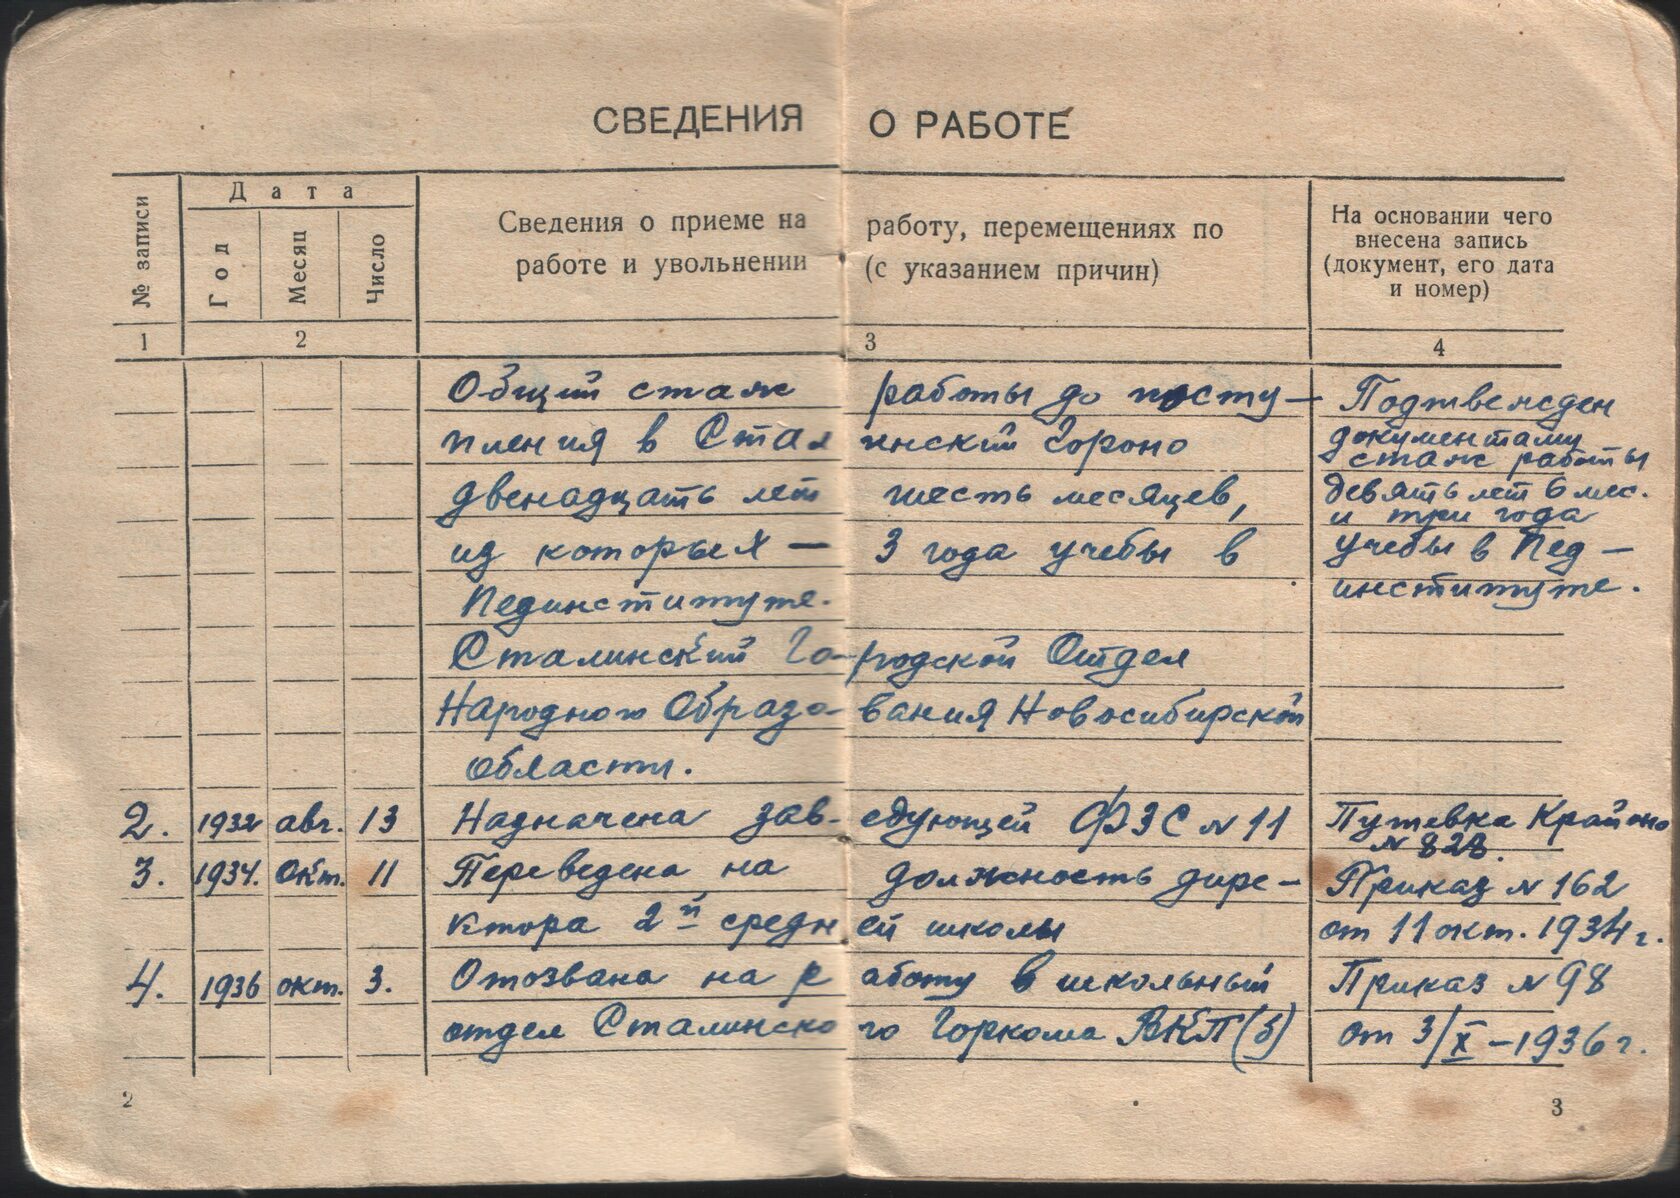 СВЕДЕНИЯ О РАБОТЕ
№ записи
Дата
Год
Месяц
Число
Сведения о приеме на работу, перемещениях по
работе и увольнении (с указанием причин)
На основании чего
внесена запись
(документ, его дата
и номер)
1 2 3 4
Общий стаж работы до посту-
пления в Сталинский Гороно
двенадцать лет шесть месяцев,
из которых — 3 года учебы в
Пединституте.
Подтвержден
документами
стаж работы
девять лет 6 мес.
и три года
учебы в Пед-
институте.
Сталинский Го-родской Отдел
Народного Образо-вания Новосибирской
области.
2. 1932 авг. 13 Назначена зав-едующей ФЗС № 11 Путевка Крайоно
№ 828.
3. 1934. Окт. 11 Переведена на должность дире- Приказ № 162
ктора 2й средней школы от 11 окт. 1934 г.
4. 1936 окт. 3. Отозвана на работу в школьный Приказ № 98
отдел Сталинского Горкома ВКП(б) от 3/X-1936 г.
2
3